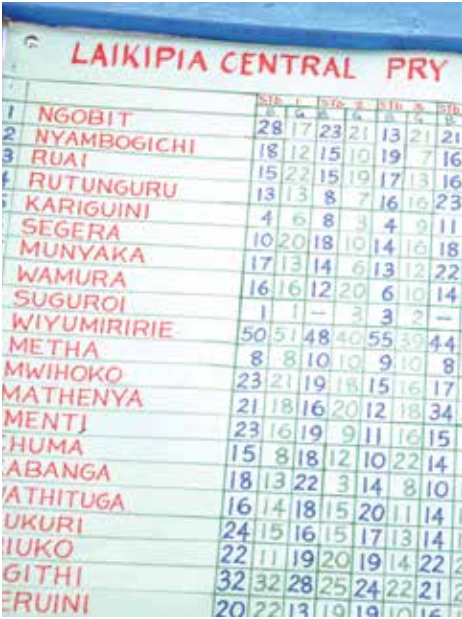 LAIKIPIA CENTRAL PRY
STD 1 STD 2 STD 3 STD
B G B G B G B
1 NGOBIT 28 17 23 21 13 21 21
2 NYAMBOGICHI 18 12 15 10 19 7 16
3 RUAI 15 22 15 19 17 13 16
4 RUTUNGURU 13 13 8 7 16 16 23
5 KARIGUINI 4 6 8 3 4 9 11
SEGERA 10 20 18 10 14 16 18
MUNYAKA 17 13 14 6 13 12 22
WAMURA 16 16 12 20 6 10 14
SUGUROI 1 1 – 3 3 2 –
WIYUMIRIRIE 50 51 48 40 55 39 44
METHA 8 8 10 10 9 10 8
MWIHOKO 23 21 19 18 15 16 17
MATHENYA 21 18 16 20 12 18 34
MENTI 23 16 19 9 11 16 15
HUMA 15 8 18 12 10 22 14
ABANGA 18 13 22 3 14 8 10
ATHITUGA 16 14 18 15 20 11 14
UKURI 24 15 16 15 17 13 14
IUKO 22 11 19 20 19 14 22
GITHI 32 32 28 25 24 22 21
ERUINI 20 22 13 19 19 10 16